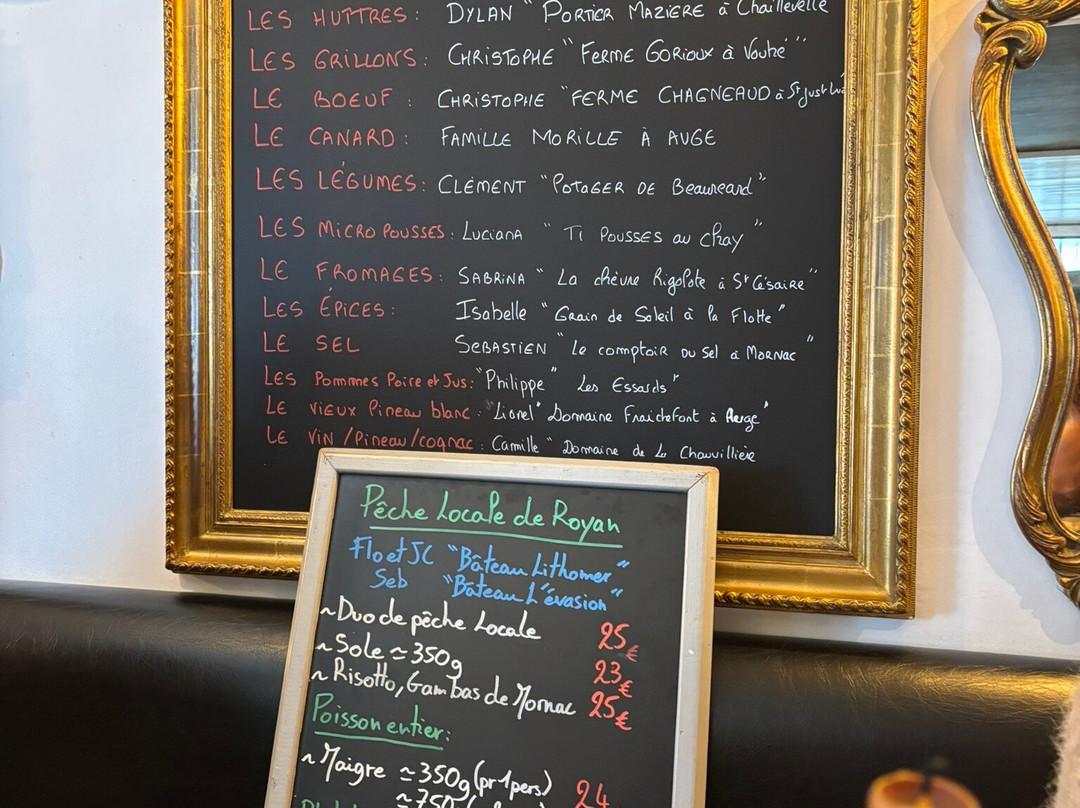 LES HUÎTRES: DYLAN "PORTIER MAZIERE à Chaillevelle
LES GRILLONS: CHRISTOPHE "FERME GORioux à Vouhé"
LE BOEUF: CHRISTOPHE "FERME CHAGNEAUD à St Just Lu
LE CANARD: FAMILLE MORILLE À AUGE
LES LÉGUMES: CLÉMENT "POTAGER DE Beaureard"
LES MICRO POUSSES: Luciana "Ti POUSSES au chay"
LE FROMAGES: SABRINA "La chèvre Rigolote à St Césaire"
LES ÉPICES: Isabelle "Grain de Soleil à la Flotte"
LE SEL SEBASTIEN "Le comptoir DU Sel à MORNAC"
LES Pommes Poire et Jus: "Philippe" Les Essards"
LE VIEUX Pineau blanc: "Lionel" Domaine Fraichefont à
LE VIN/Pineau/cognac: Camille "Domaine de La Chauvillière
Pêche Locale de Royan
Flo et JC "Bâteau Lithomer"
Seb "Bâteau L'évasion"
~Duo de pêche Locale 25€
~Sole ≃350g 23€
~Risotto, Gambas de Mornac 25€
Poisson entier:
~Maigre ≃350g (pr 1 pers) 24
≃750